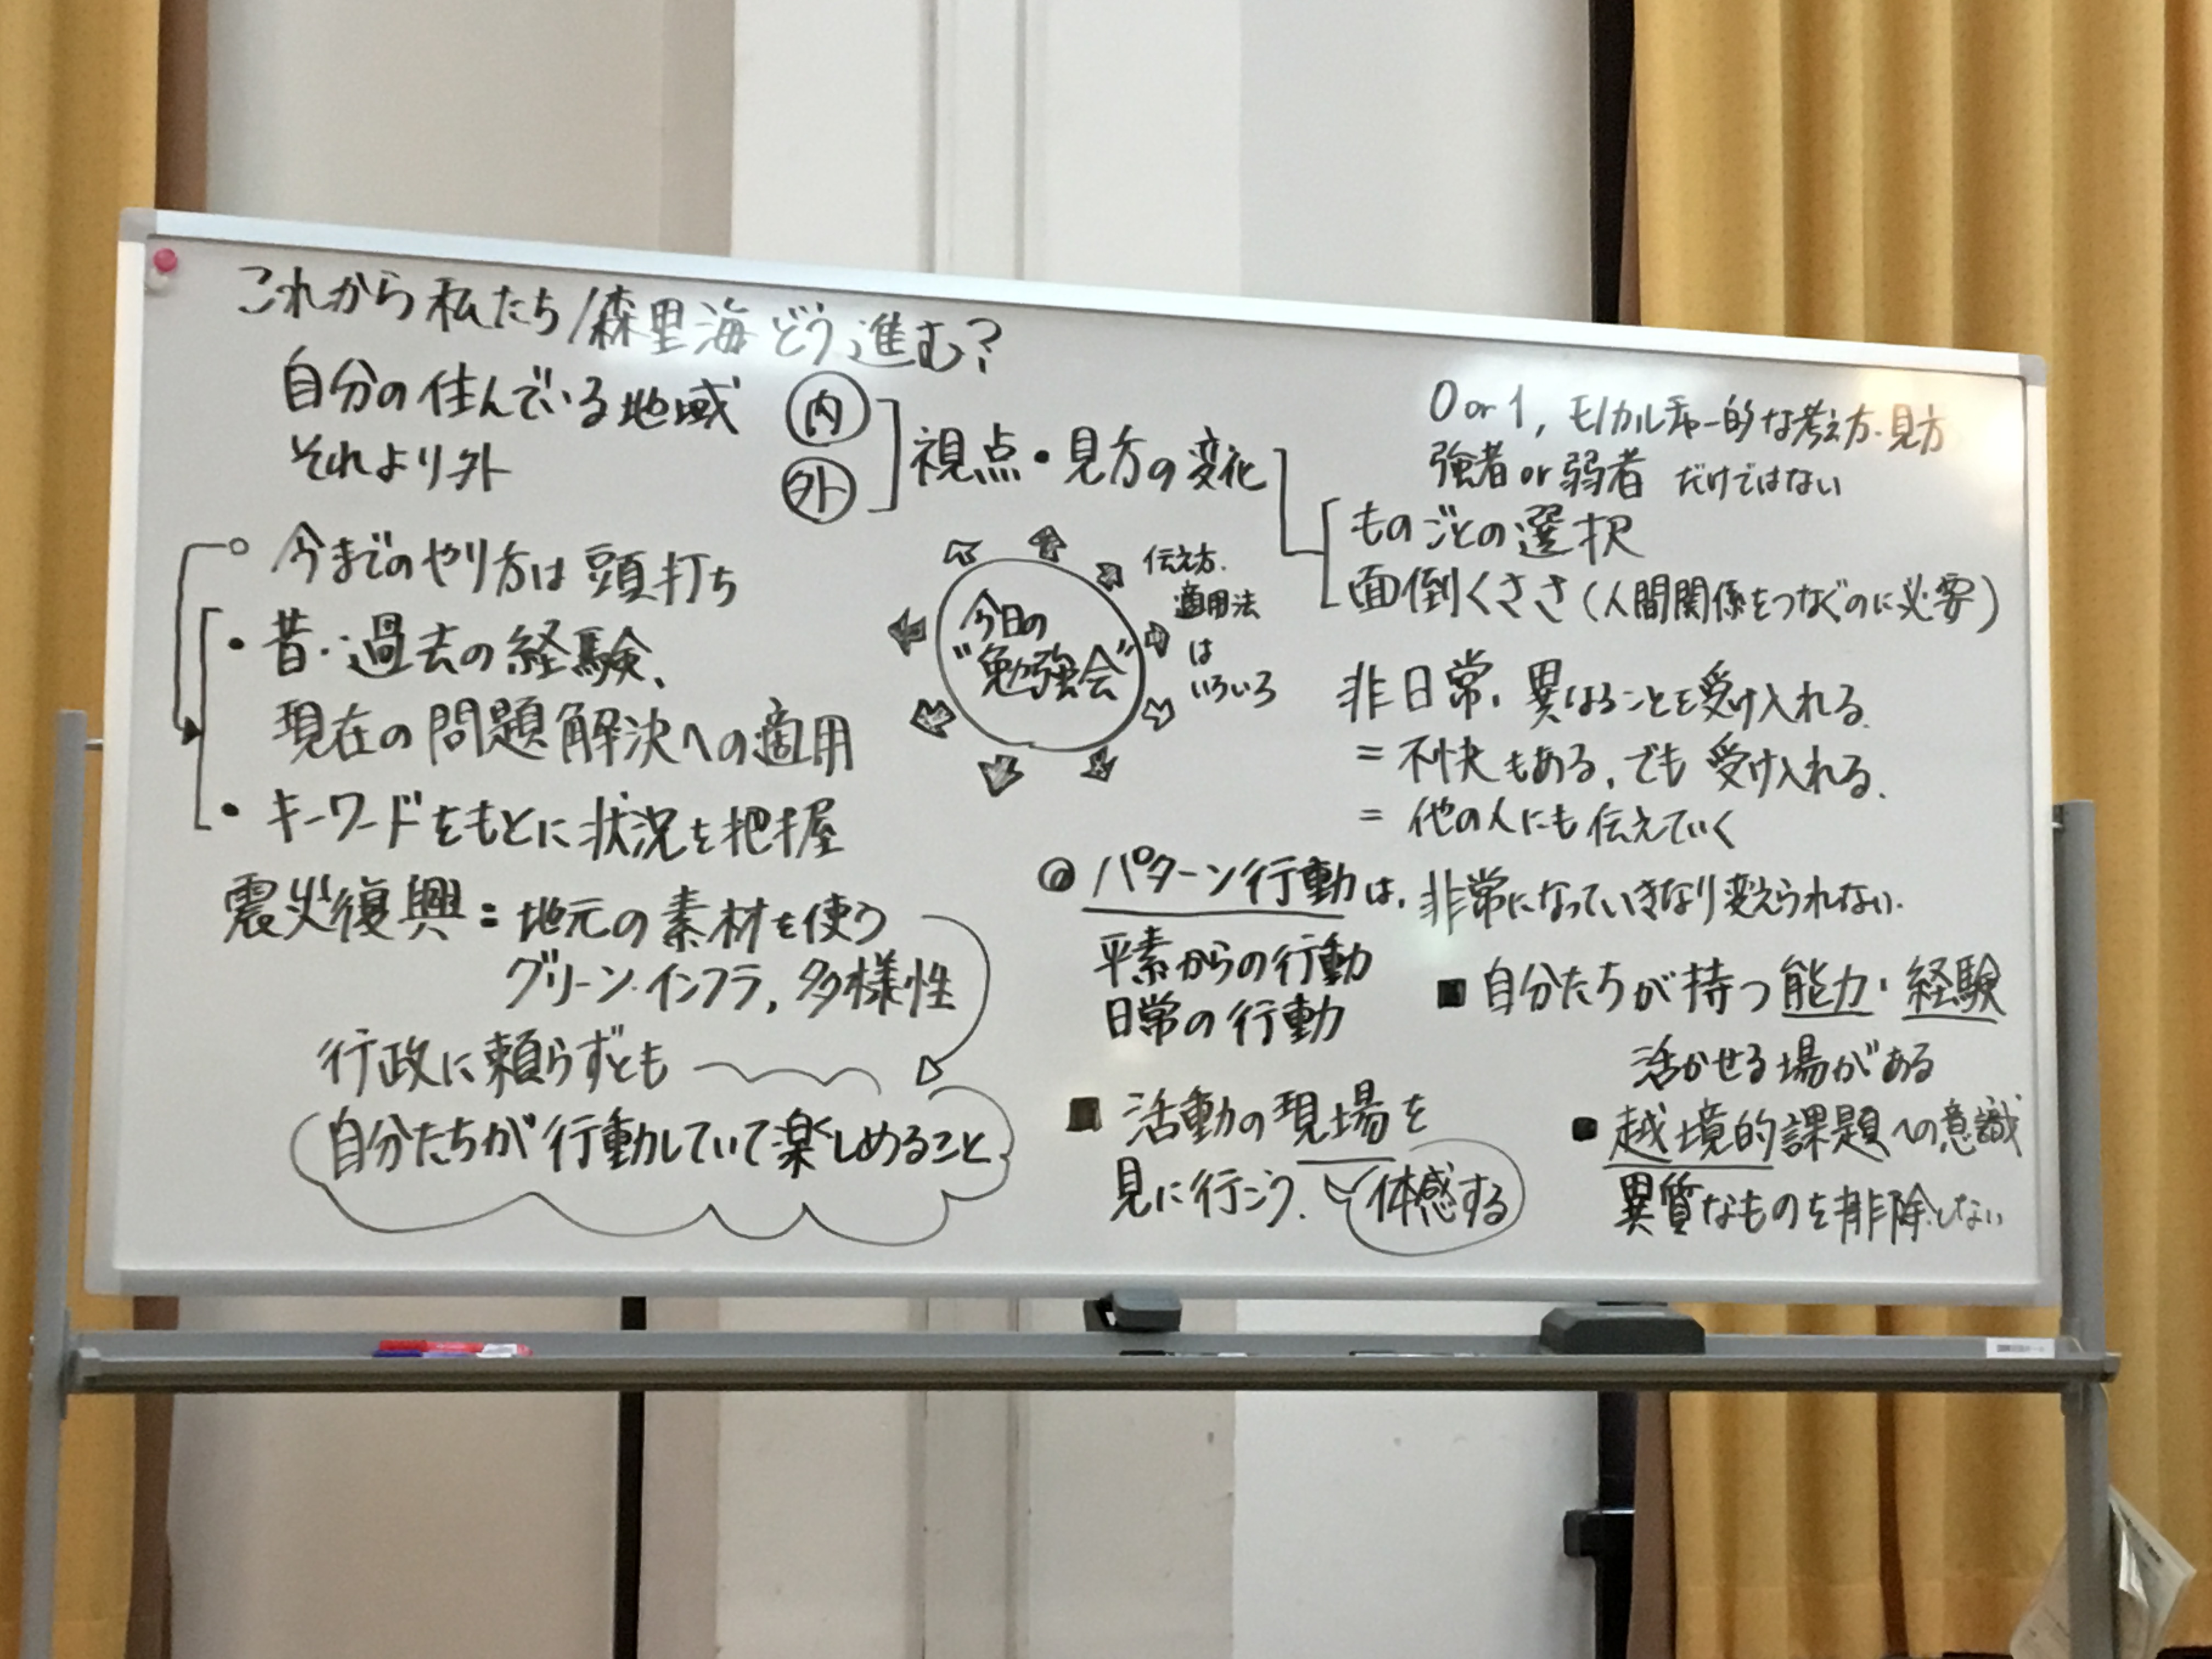 これから私たち/森里海どう進む?
自分の住んでいる地域 内
それより外 外
視点・見方の変化
0 or 1, モノカルチャー的な考え方・見方
強者or弱者 だけではない
ものごとの選択
面倒くささ(人間関係をつなぐのに必要)
○ 今までのやり方は頭打ち
・昔・過去の経験、
現在の問題解決への適用
・キーワードをもとに状況を把握
今日の
"勉強会"
伝え方.
適用法
は
いろいろ
非日常、異なることを受け入れる.
= 不快もある, でも 受け入れる.
= 他の人にも伝えていく
震災復興:地元の素材を使う
グリーン・インフラ, 多様性
行政に頼らずとも
自分たちが行動していて楽しめること
◎ パターン行動は, 非常になっていきなり変えられない.
平素からの行動
日常の行動
■ 活動の現場を
見に行こう. 体感する
■ 自分たちが持つ能力・経験
活かせる場がある
■ 越境的課題への意識
異質なものを排除しない